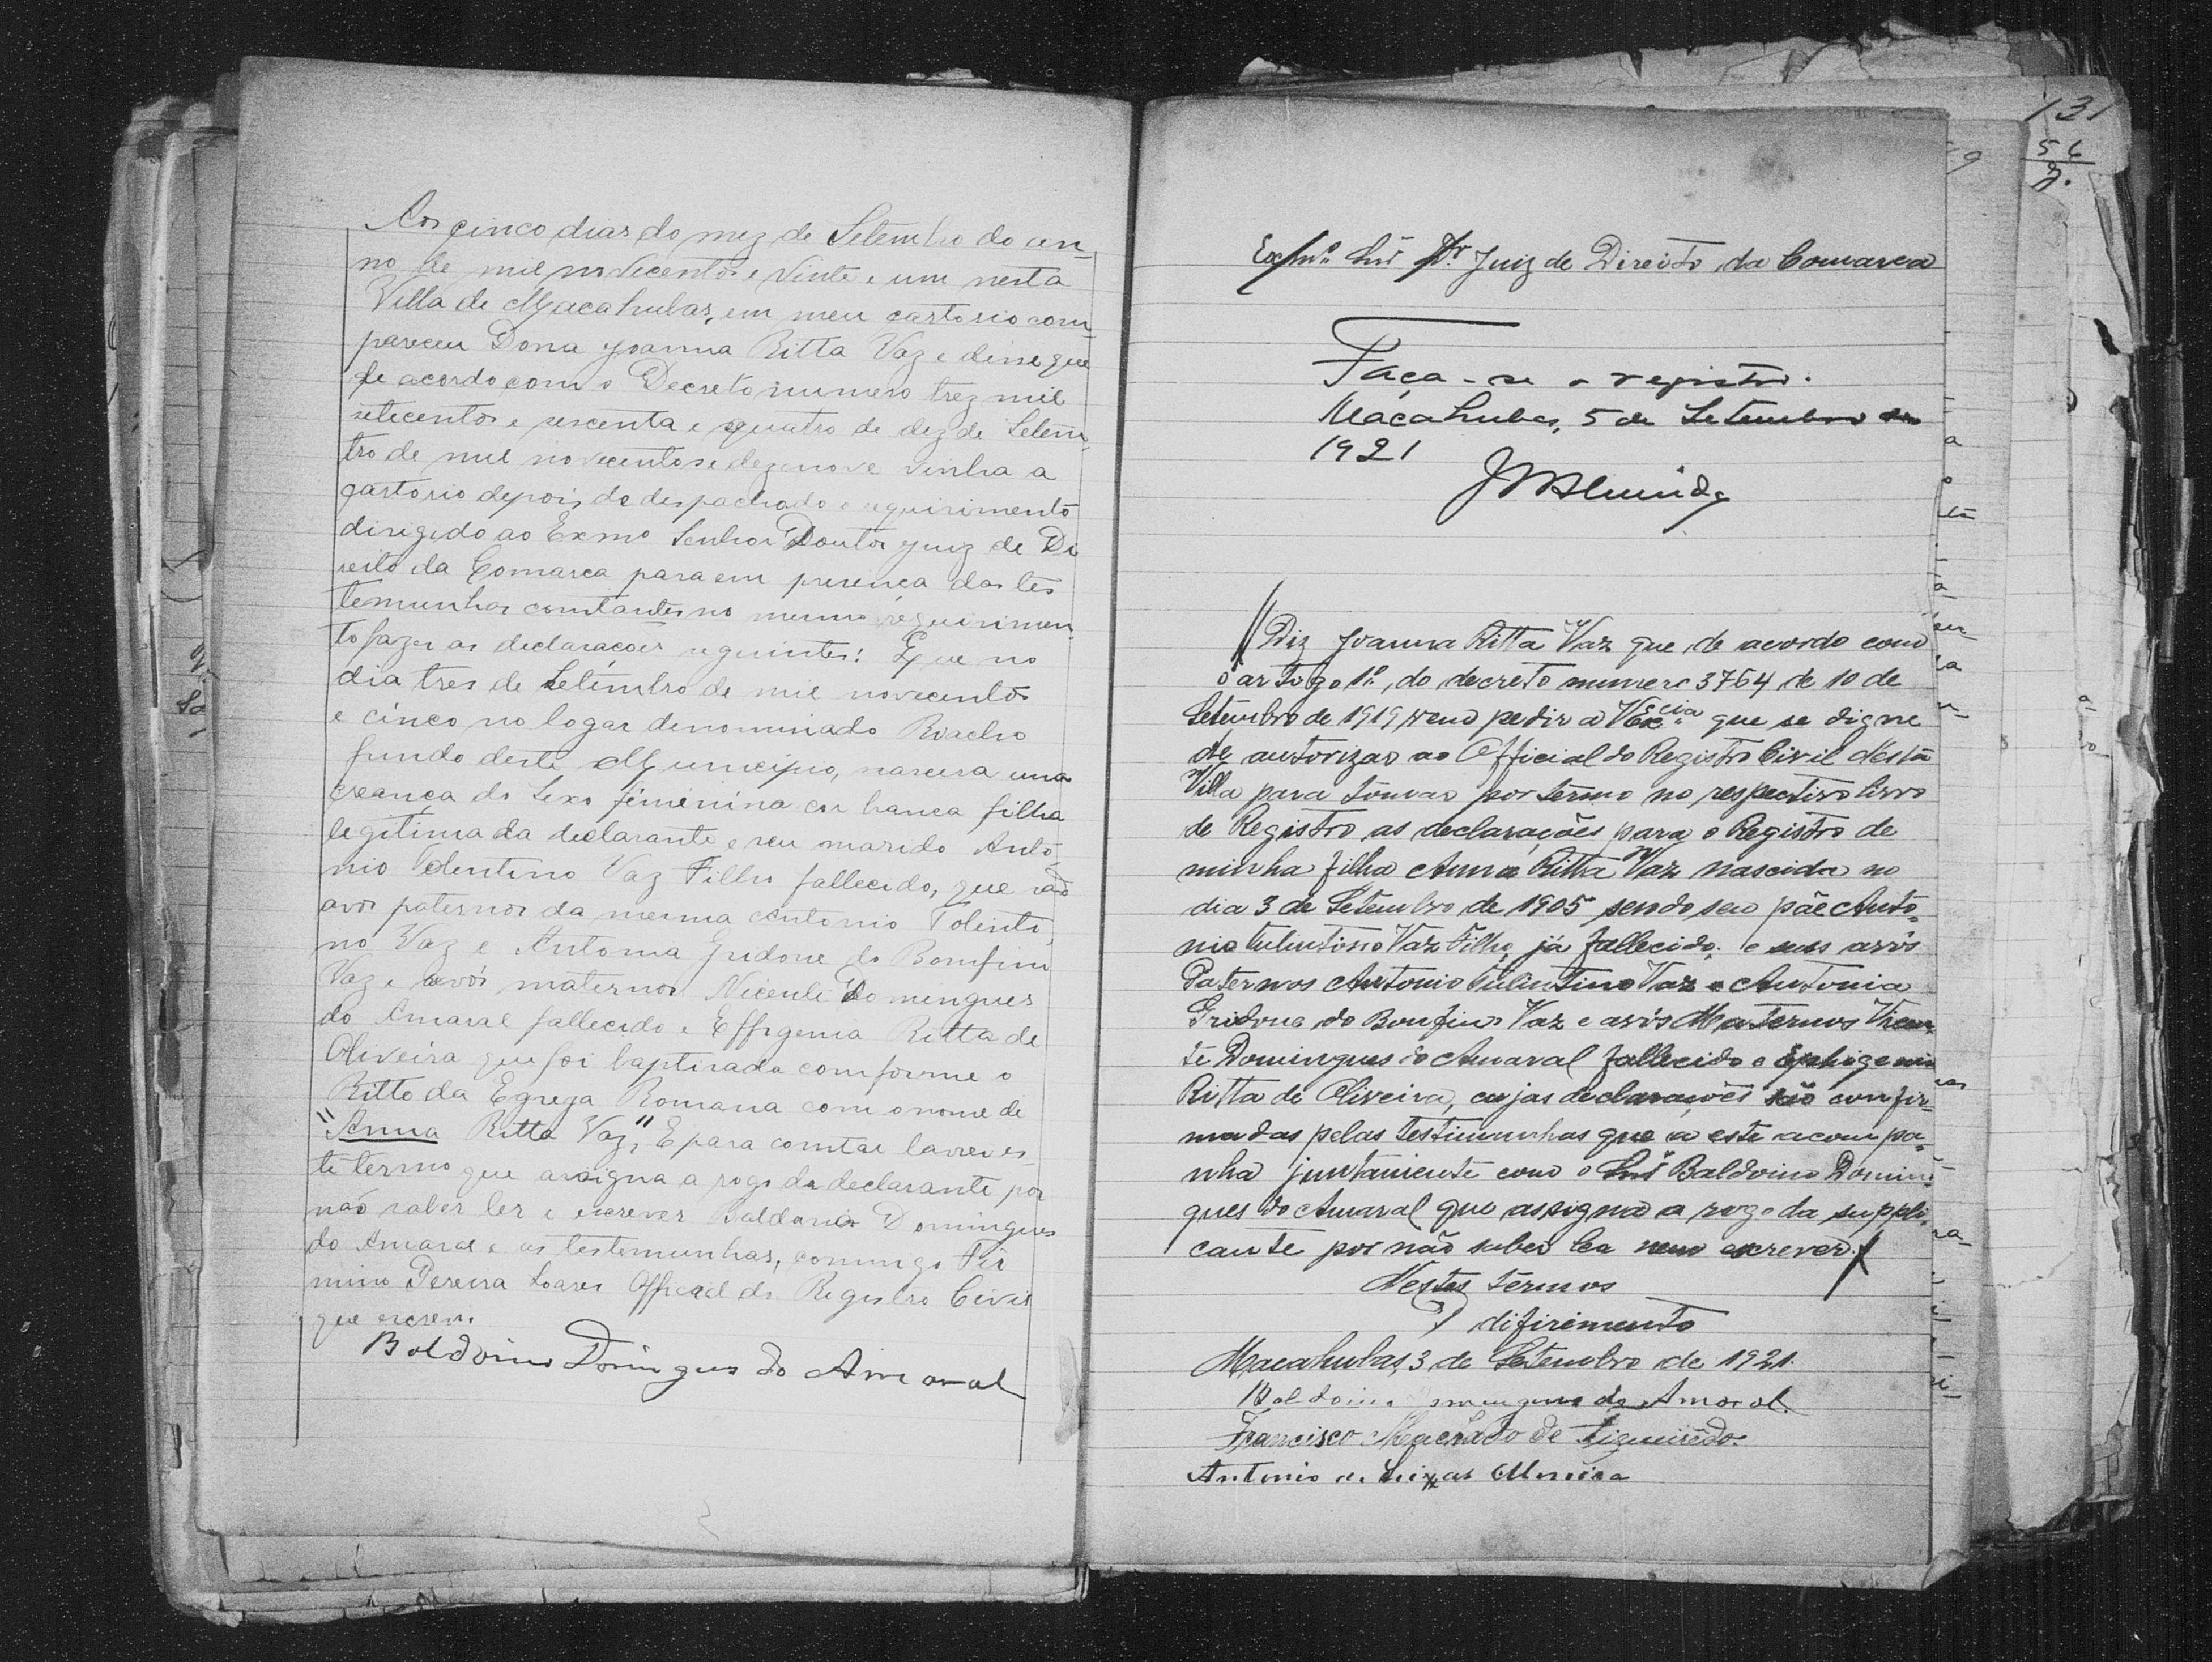 Aos cinco dias do mez de Setembro do an-
no de mil novecentos e vinte e um nesta
Villa de Macahubas, em meu cartorio com-
pareceu Dona Joanna Ritta Vaz e disse que
de acordo com o Decreto numero trez mil
setecentos e sescenta e quatro de dez de Setem-
bro de mil novecentos e dezenove vinha a
cartorio depois de despachado o requirimento
dirigido ao Exmo Senhor Doutor Juiz de Di
reito da Comarca para em presença das tes
temunhas constantes no mesmo requirimen-
to fazer as declarações seguintes: Que no
dia tres de Setembro de mil novecentos
e cinco no logar denominado Riacho
fundo deste Municipio, nascera uma
creança do sexo feminina cor branca filha
legitima da declarante e seu marido Anto-
nio Tolentino Vaz Filho fallecido, que são
avos paternos da mesma Antonio Tolenti-
no Vaz e Antonia Gridone do Bomfim
Vaz e avós maternos Vicente Domingues
do Amaral fallecido e Effigenia Ritta de
Oliveira que foi baptisada comforme o
Ritto da Egreja Romana com o nome de
"Anna Ritta Vaz", E para constar lavrei es-
te termo que assigna a rogo da declarante por
não saber ler e escrever Baldoino Domingues
do Amaral e as testemunhas, comigo Fir
mino Pereira Soares Official do Registro Civil
que escrevi.
Boldoino Domingues do Amaral
131
56
Exmº Snr Dr. Juiz de Direito da Comarca
Faça-se o registro.
Macahubas, 5 de Setembro de
1921
Diz Joanna Ritta Vaz que de acordo com
o artigo 1º, do decreto numero 3764 de 10 de
Setembro de 1919, vem pedir a V Excia que se digne
de autorizar ao Official do Registro Civil desta
Villa para tomar por termo no respectivo livro
de Registro as declarações para o Registro de
minha filha Anna Ritta Vaz nascida no
dia 3 de Setembro de 1905 sendo seu pãe Anto-
nio Tulintino Vaz Filho, já fallecido; e seus avós
Paternos Antonio Tulintino Vaz e Antonia
Gridone do Bonfim Vaz e avós Maternos Vicen-
te Domingues do Amaral fallecido e Ephigenia
Ritta de Oliveira, cujas declarações são confir-
madas pelas testimunhas que a este acompa-
nha juntamente com o Snr Baldoino Domin-
gues do Amaral que assigna a rogo da suppli-
cante por não saber ler nem escrever.
Nestes termos
P difirimento
Macahubas, 3 de Setembro de 1921.
Boldoino Domingues do Amaral.
Francisco Machado de Figueirêdo.
Antonio de Seixas Moreira